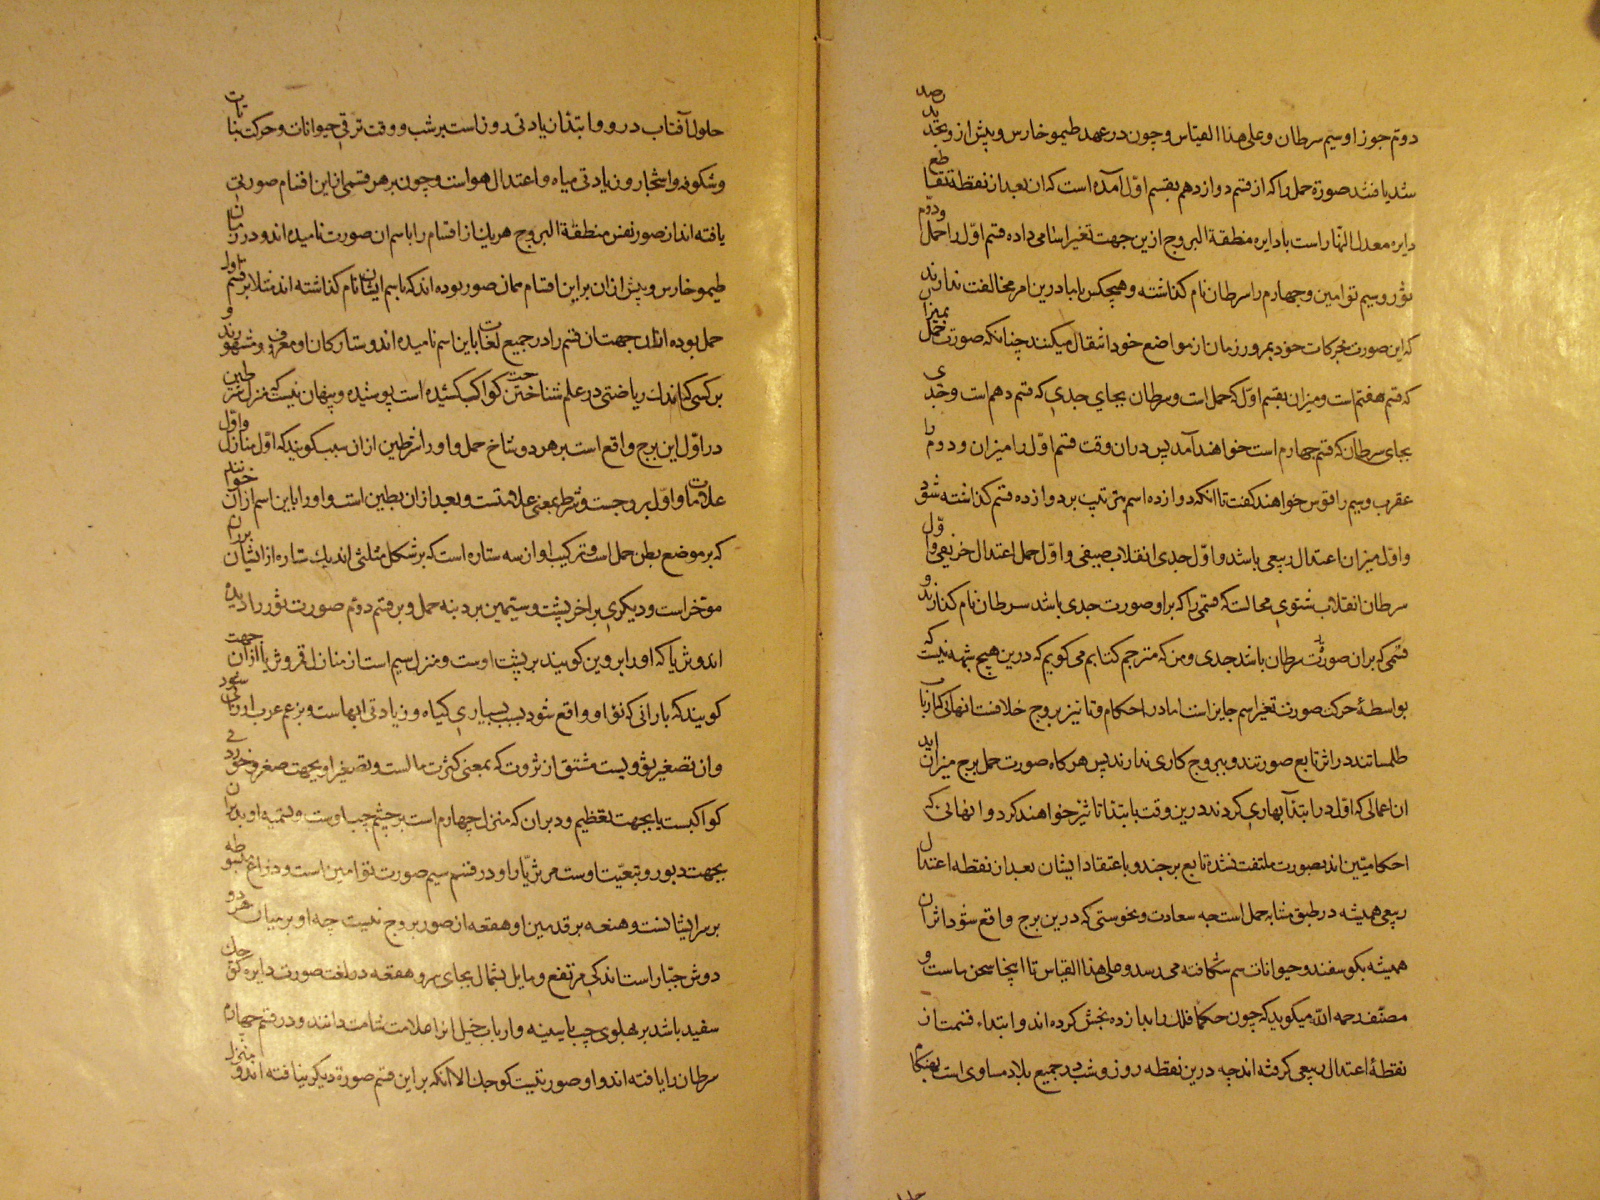 دوم جوزا و سیم سرطان و علی هذا القیاس و چون در عهد طیموخارس و پیش از و بتجدید رصد
شد یافتند صورة حمل را که از قسم دوازدهم بقسم اول آمده است که ان بعد از نقطة تقاطع
دایره معدل النهار است با دایره منطقة البروج ازین جهت تغیر اسامی داده قسم اول را حمل و دوم
ثور و سیم توامین و چهارم را سرطان نام گذاشته و هیچکس با ما درین امر مخالفت ندارند
که این صورت بحرکات خود بمرور زمان از مواضع خود انتقال میکنند چنانکه صورت حمل بمیزان
که قسم هفتم است و میزان بقسم اول که حمل است و سرطان بجای جدی که قسم دهم است و جدی
بجای سرطان که قسم چهارم است خواهند آمد پس دران وقت قسم اول را میزان و دوم را
عقرب و سیم را قوس خواهند گفت تا انکه دوازده اسم بترتیب بر دوازده قسم گذاشته شود
و اول میزان اعتدال ربیعی باشد و اول جدی انقلاب صیفی و اول حمل اعتدال خریفی و اول
سرطان انقلاب شتوی محالست که قسمی را که بر او صورت جدی باشد سرطان نام گذارند و
قسمی که بران صورت سرطان باشد جدی و من که مترجم کتابم می گویم که درین هیچ شبهه نیست که
بواسطهٔ حرکت صورت تغیر اسم جایز است اما در احکام و تاثیر بروج خلافست انهائی که ارباب
طلسماتند در اثر تابع صورتند و ببروج کاری ندارند پس هرگاه صورت حمل ببرج میزان اید
ان اعمالی که اول در ابتدآ بهاری کردند درین وقت بابتدا تاثیر خواهند کرد و انهائی که
احکامیین اند بصورت ملتفت نشده تابع برجند و باعتقاد ایشان بعد از نقطه اعتدال
ربیعی همیشه در طبق مشابه حمل است چه سعادت و نحوستی که درین برج واقع شود اثر ان
همیشه بگوسفند و حیوانات سم شکافته می رسد و علی هذا القیاس تا اینجا سخن ماست و
مصنف رحمه الله میگوید که چون حکما فلک را بدوازده بخش کرده اند و ابتداء قسمت از
نقطهٔ اعتدال ربیعی گرفته اند چه درین نقطه روز و شب در جمیع بلاد مساوی است بهنگام
حلول آفتاب درو و ابتدآ زیادتی روز است بر شب و وقت ترقی حیوانات و حرکت نباتات
و شکوفه و اشجار و زیادتی میاه و اعتدال هواست و چون بر هر قسمی ازین اقسام صورتی
یافته اند از صور نفس منطقة البروج هر یک از اقسام را باسم ان صورت نامیده اند و در زمان
طیموخارس و پیش ازان بر این اقسام همان صور بوده اند که باسم ایشان نام گذاشته اند مثلا بر قسم اول
حمل بوده ازان جهت ان قسم را در جمیع لغات باین اسم نامیده اند و ستارگان او معروف و مشهورند و
بر کسی که اندک ریاضتی در علم شناختن کواکب کشیده است پوشیده و پنهان نیست که منزل شرطین
در اول این برج واقع است بر هر دو شاخ حمل و او را شرطین ازان سبب گویند که اول منازل و اول
علامات اول بروجست و شرط بمعنی علامتست و بعد ازان بطین است و او را باین اسم ازان خوانند
که بر موضع بطن حمل است و ترکیب او ان سه ستاره است که بر شکل مثلثی اند یک ستاره از ایشان بران
موخر است و دیگری بر اخر پشت و سیمین بر دنبه حمل و بر قسم دوم صورت ثور را دیده
اند و ثریا که او را پروین گویند بر پشت اوست و منزل سیم است از منازل قمر و ثریا ازان جهت
گویند که بارانی که نو او واقع شود سبب بسیاری گیاه و زیادتی ابهاست و بزعم عرب ارزانی شود
و ان تصغیر ثرویست مشتق از ثروت که بمعنی کثرت مالست و تصغیر او بجهت صغر و خوردی
کواکبست یا بجهت تعظیم و دبران که منزل چهارم است بر چشم چپ اوست و تسمیه او بدبران
بجهت دبور و تبعیت اوست مر ثریا را و در قسم سیم صورت توامین است و ذراع مبسوطه
بر سر ایشانست و هنعه بر قدمین او و هقعه از صور بروج نیست چه او بر میان هر دو
دوش جبار است اندکی مرتفع و مایل بشمال بجای سر و هقعه در لغت صورت دایره کوچک
سفید باشد بر پهلوی چپ یا سینه و ارباب خیل انرا علامت شامت دانند و در قسم چهارم
سرطان را یافته اند و او صورتیست کوچک الا انکه بر این قسم صورة دیگر نیافته اند و منزل